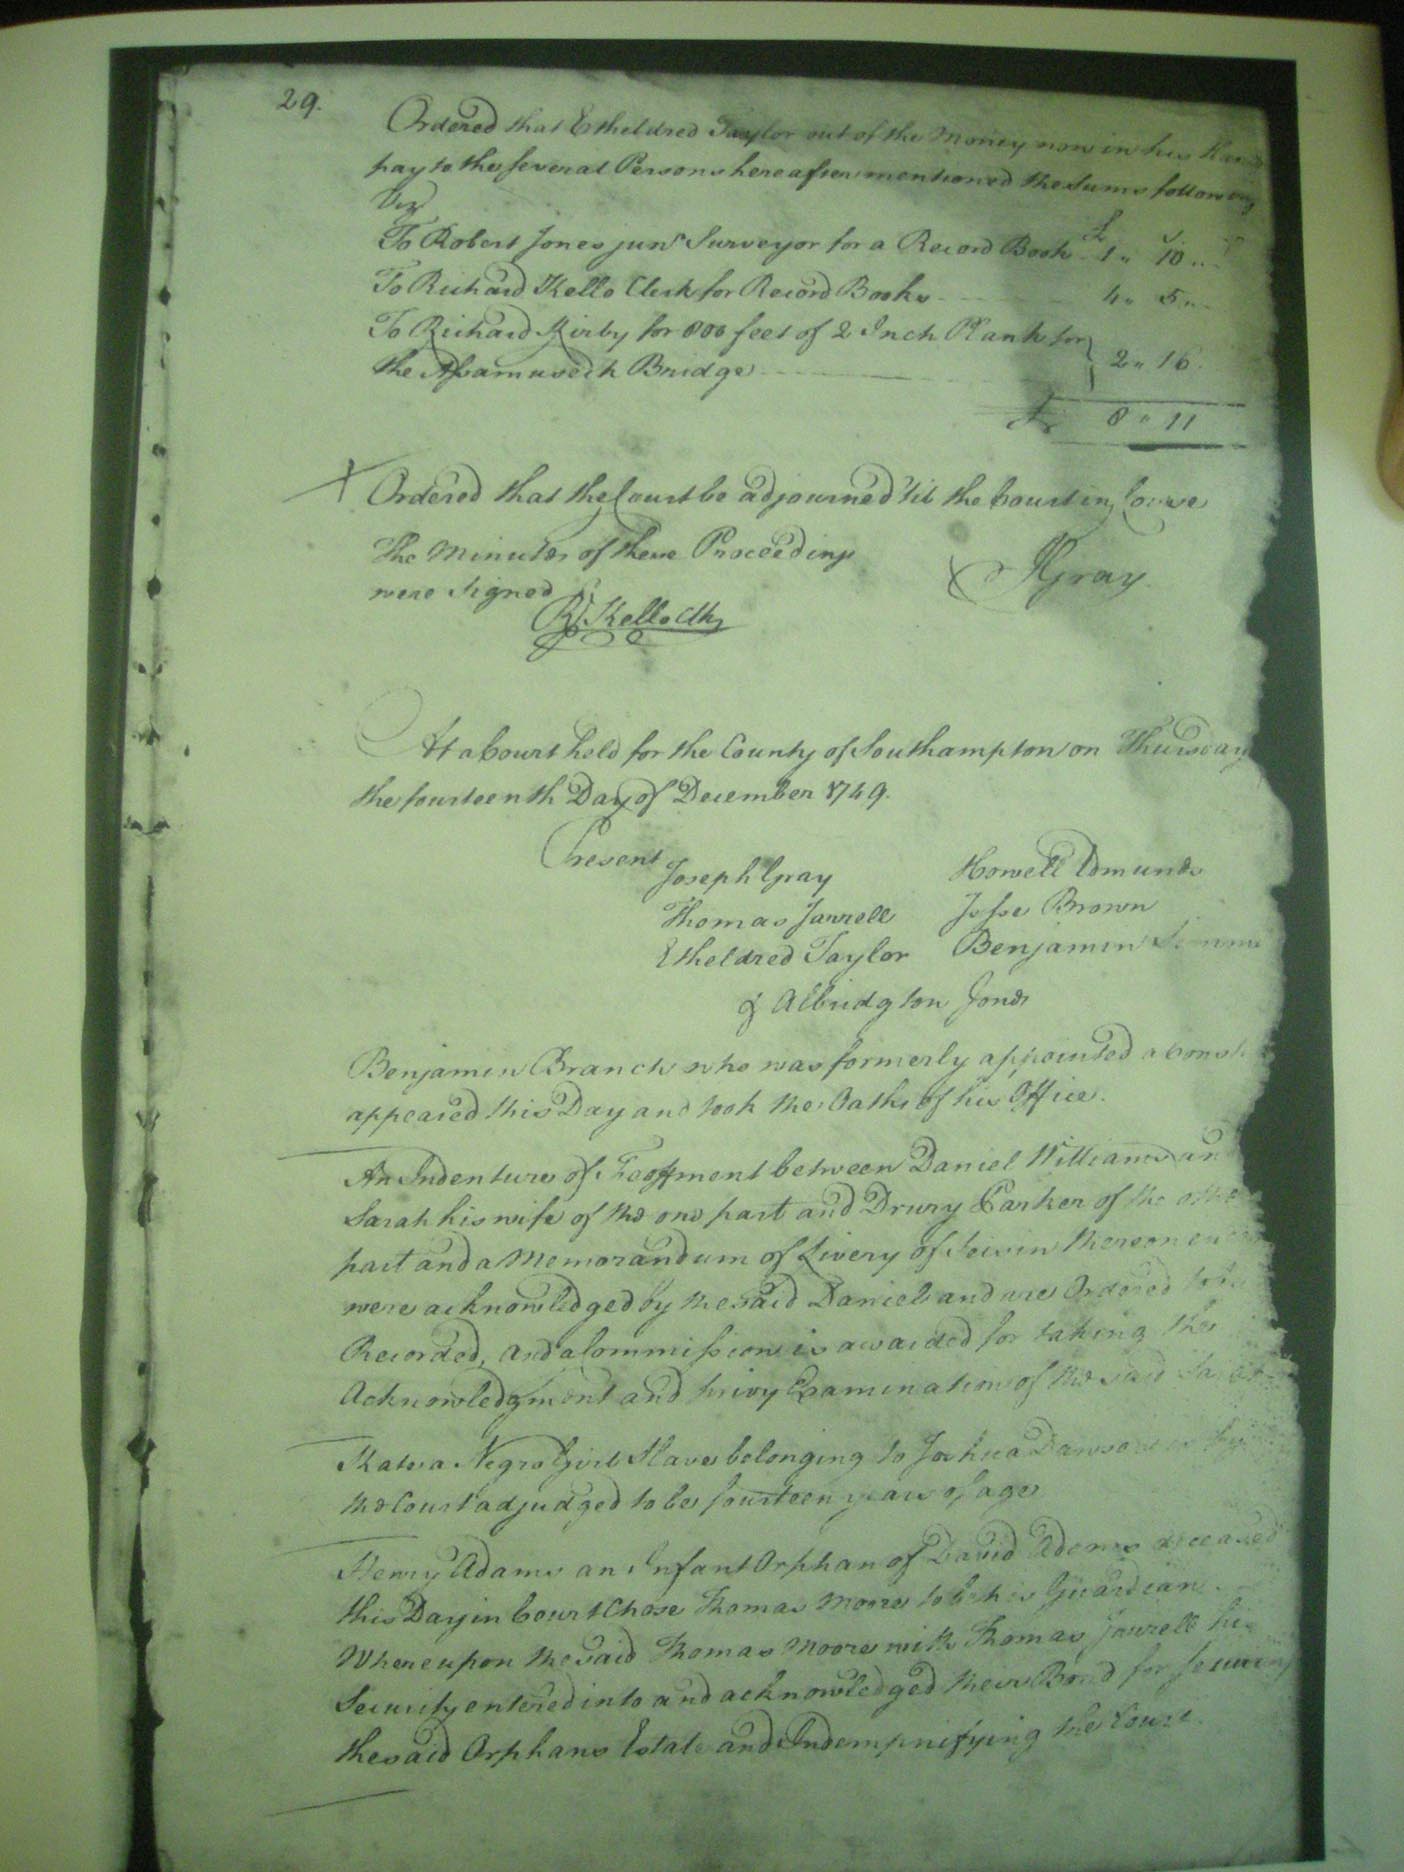 29.
Ordered that Etheldred Taylor out of the Money now in his Hands
pay to the several Persons hereafter mentioned the Sums following
Vizt
£ s
To Robert Jones junr Surveyor for a Record Book 1 " 10 "
To Richard Kello Clerk for Record Books 4 " 5 "
To Richard Kirby for 800 feet of 2 Inch Plank for
the Assamuseck Bridge 2 " 16
£ 8 " 11
Ordered that the Court be adjourned 'til the Court in Course
The Minutes of these Proceedings
were signed
JGray
R. Kello Clk
At a Court held for the County of Southampton on Thursday
the fourteenth Day of December 1749.
Present
Joseph Gray Howell Edmunds
Thomas Jarrell Jesse Brown
Etheldred Taylor Benjamin
& Albridgton Jones
Benjamin Branch who was formerly appointed a
appeared this Day and took the Oaths of his Office.
An Indenture of Feoffment between Daniel Williams and
Sarah his wife of the one part and Drury Parker of the other
part and a Memorandum of Livery of Seisin thereon
were acknowledged by the said Daniel and are Ordered to be
Recorded, and a Commission is awarded for taking the
Acknowledgment and privy Examination of the said Sarah
Kate a Negro Girl Slave belonging to Joshua Dawson is by
the Court adjudged to be fourteen years of age
Henry Adams an Infant Orphan of David Adams deceased
this Day in Court Chose Thomas Moore to be his Guardian.
Whereupon the said Thomas Moore with Thomas Jarrell his
Security entered into and acknowledged their Bond for securing
the said Orphans Estate and Indempnifying the Court.